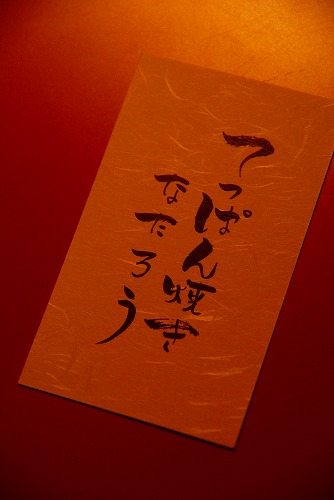 てっぱん焼き
なたろう